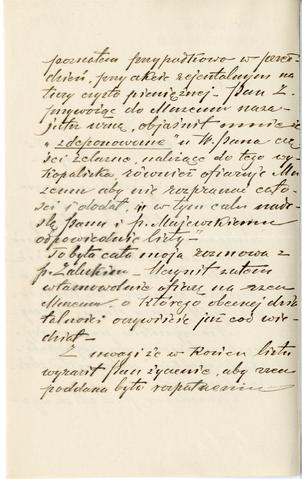 poznałem przypadkowo w przed-
dzień, przy akcie rejentalnym na-
tury czysto pieniężnej. Pan Z.
przywożąc do Muzeum naza-
jutrz urnę, objaśnił mnie że
"zdeponowane" u W. Pana czę-
ści żelazne, należące do tego wy-
kopaliska, również ofiaruje Mu-
zeum aby nie rozpraszać cało-
ści i dodał, "w tym celu nade-
ślę Panu i p. Majewskiemu
odpowiednie listy."
To była cała moja rozmowa z
p. Zaleskim. Uczynił zatem
własnowolnie ofiarę na rzecz
Muzeum, o którego obecnej dzia-
łalności oczywiście już coś wie-
dział.
Z uwagi że w końcu listu
wyraził Pan życzenie, aby rzecz
poddana była rozpatrzeniu